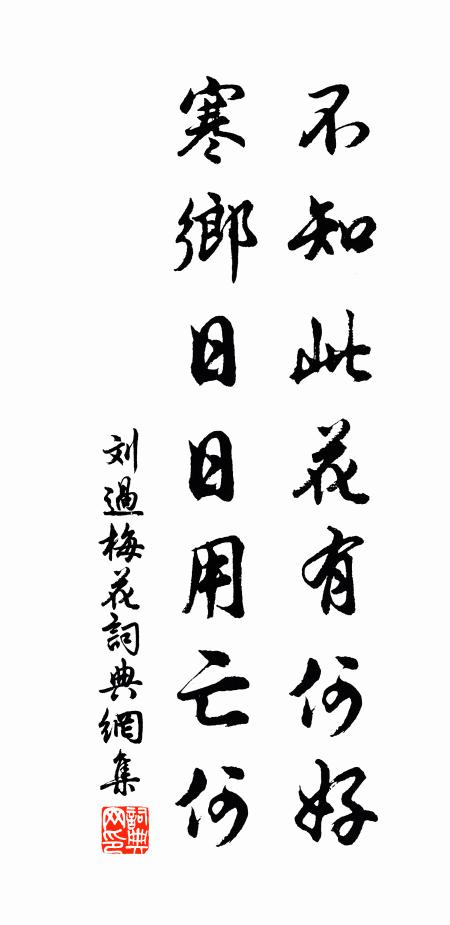 不知此花有何好
寒鄉日日用亡何
刘過梅花詞典網集
詞典网印